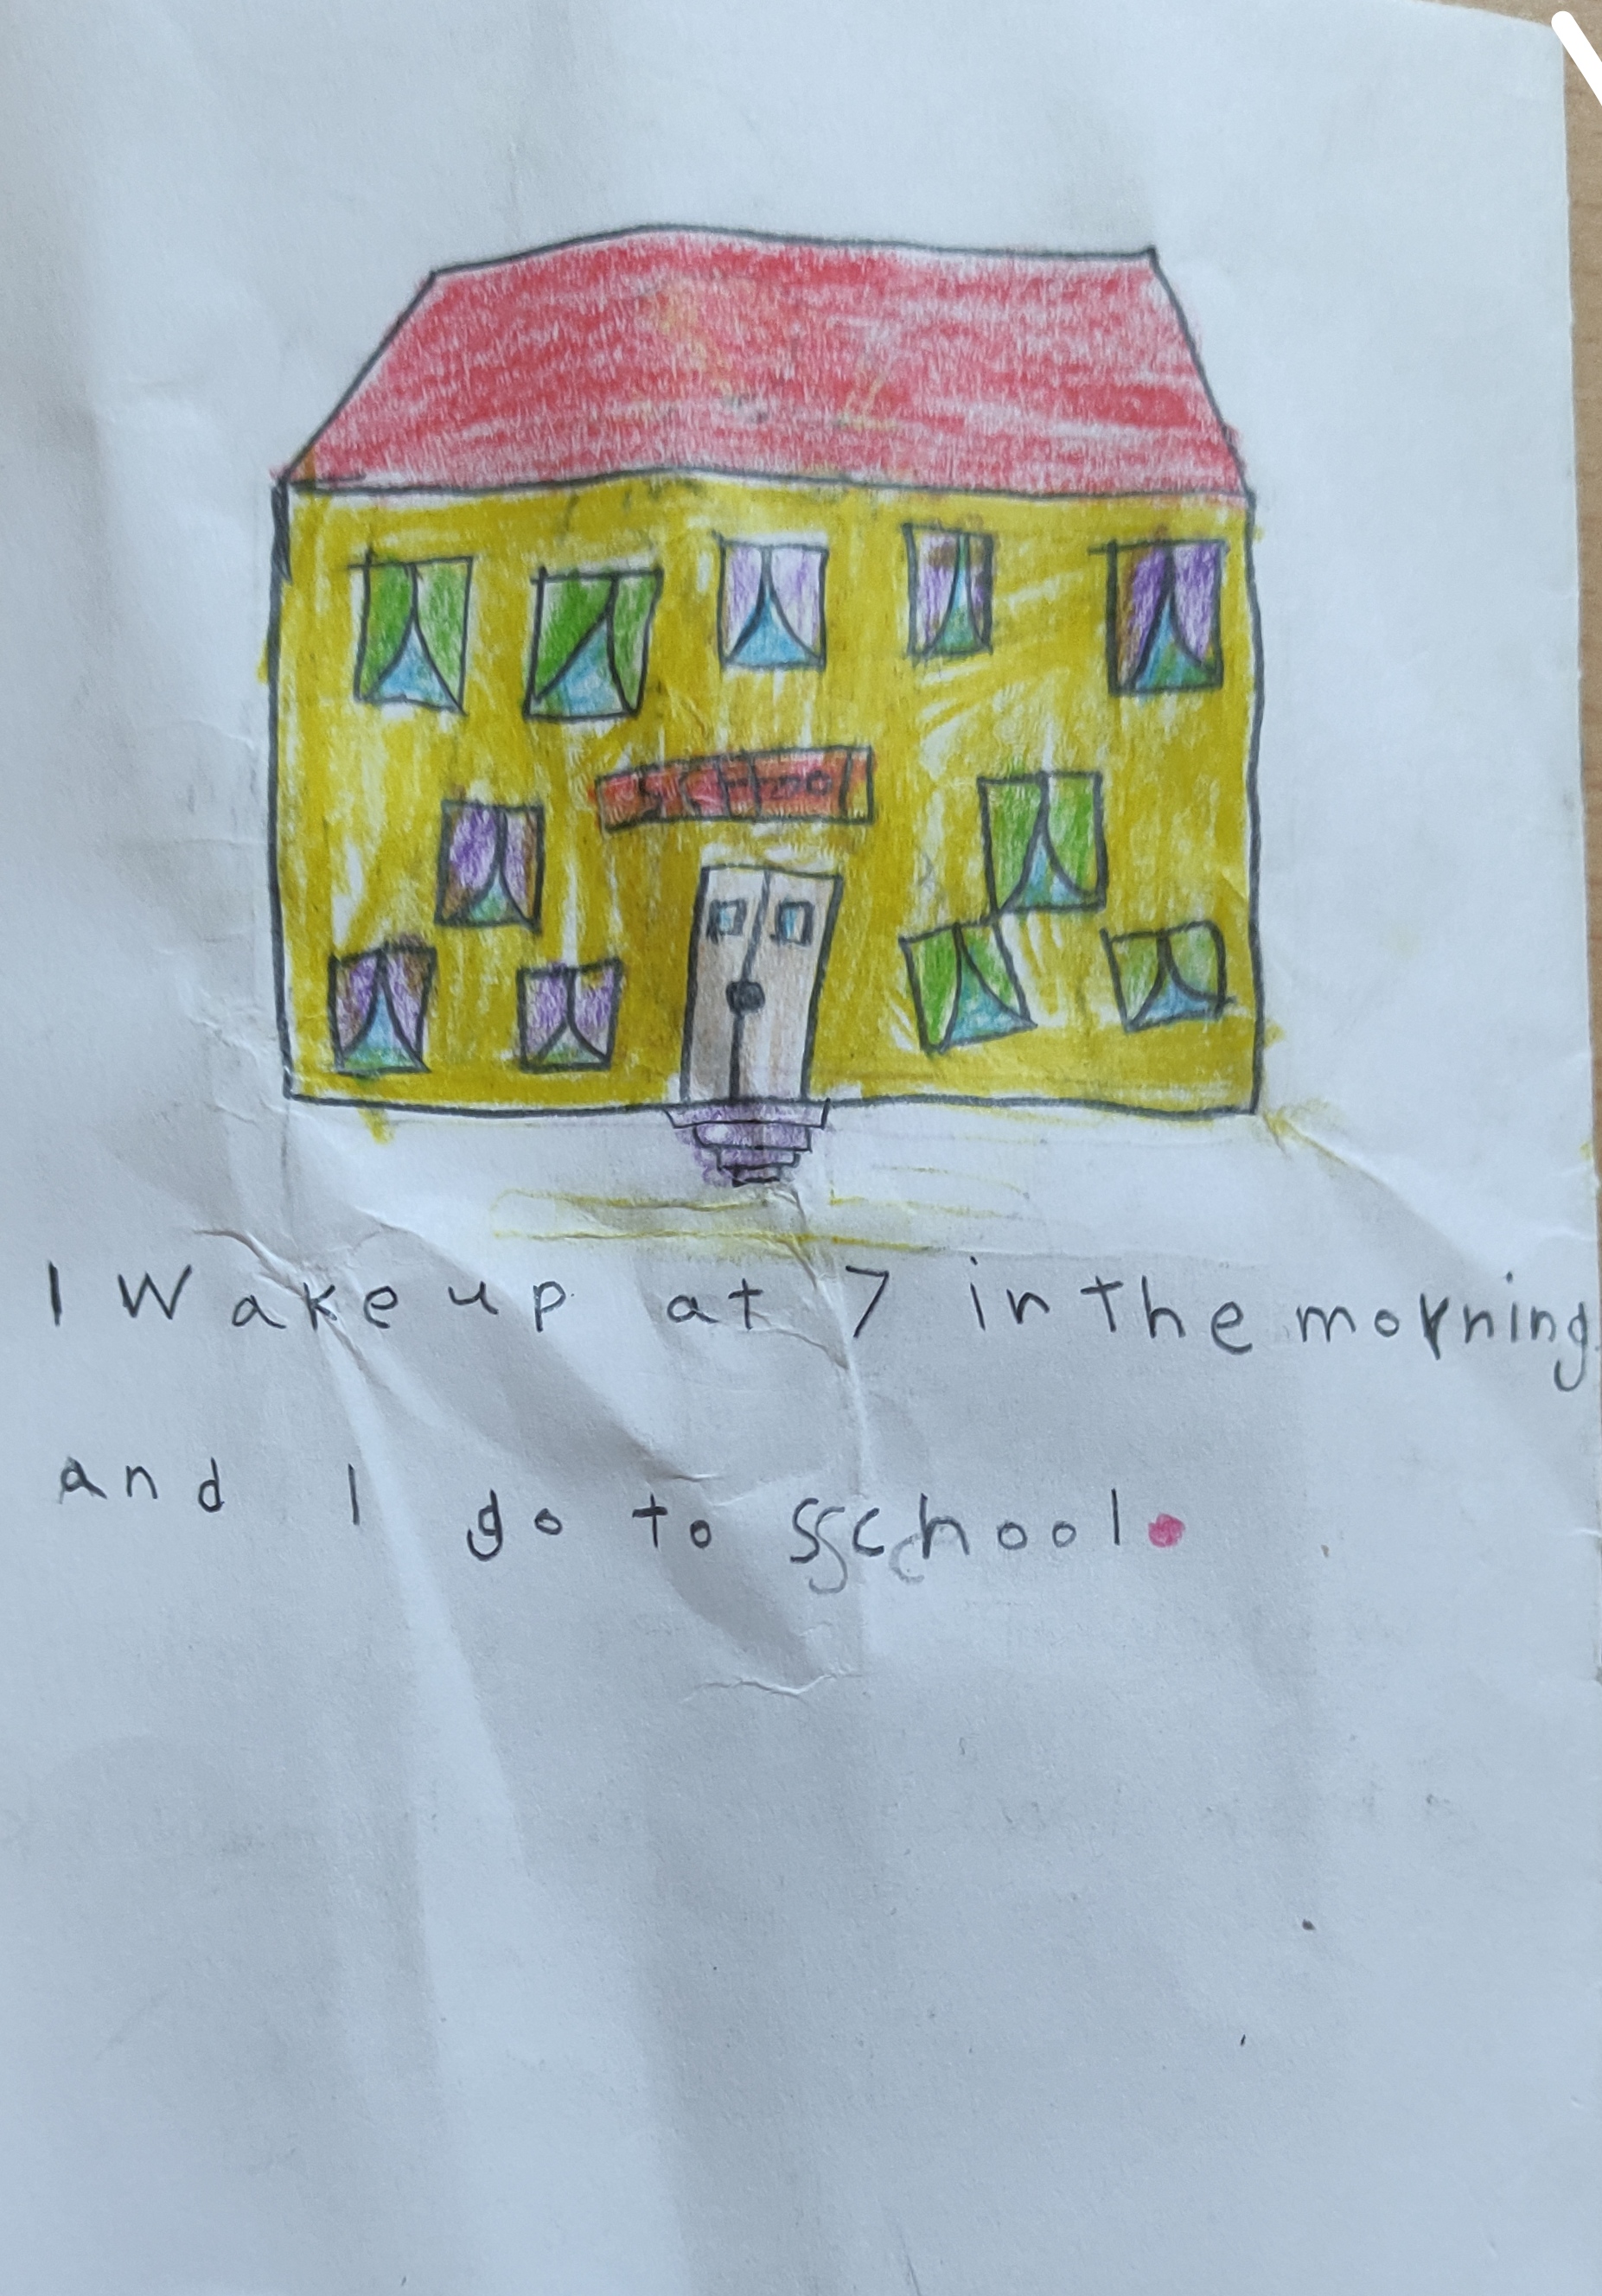 School
I Wake up at 7 in the morning
and I go to school.